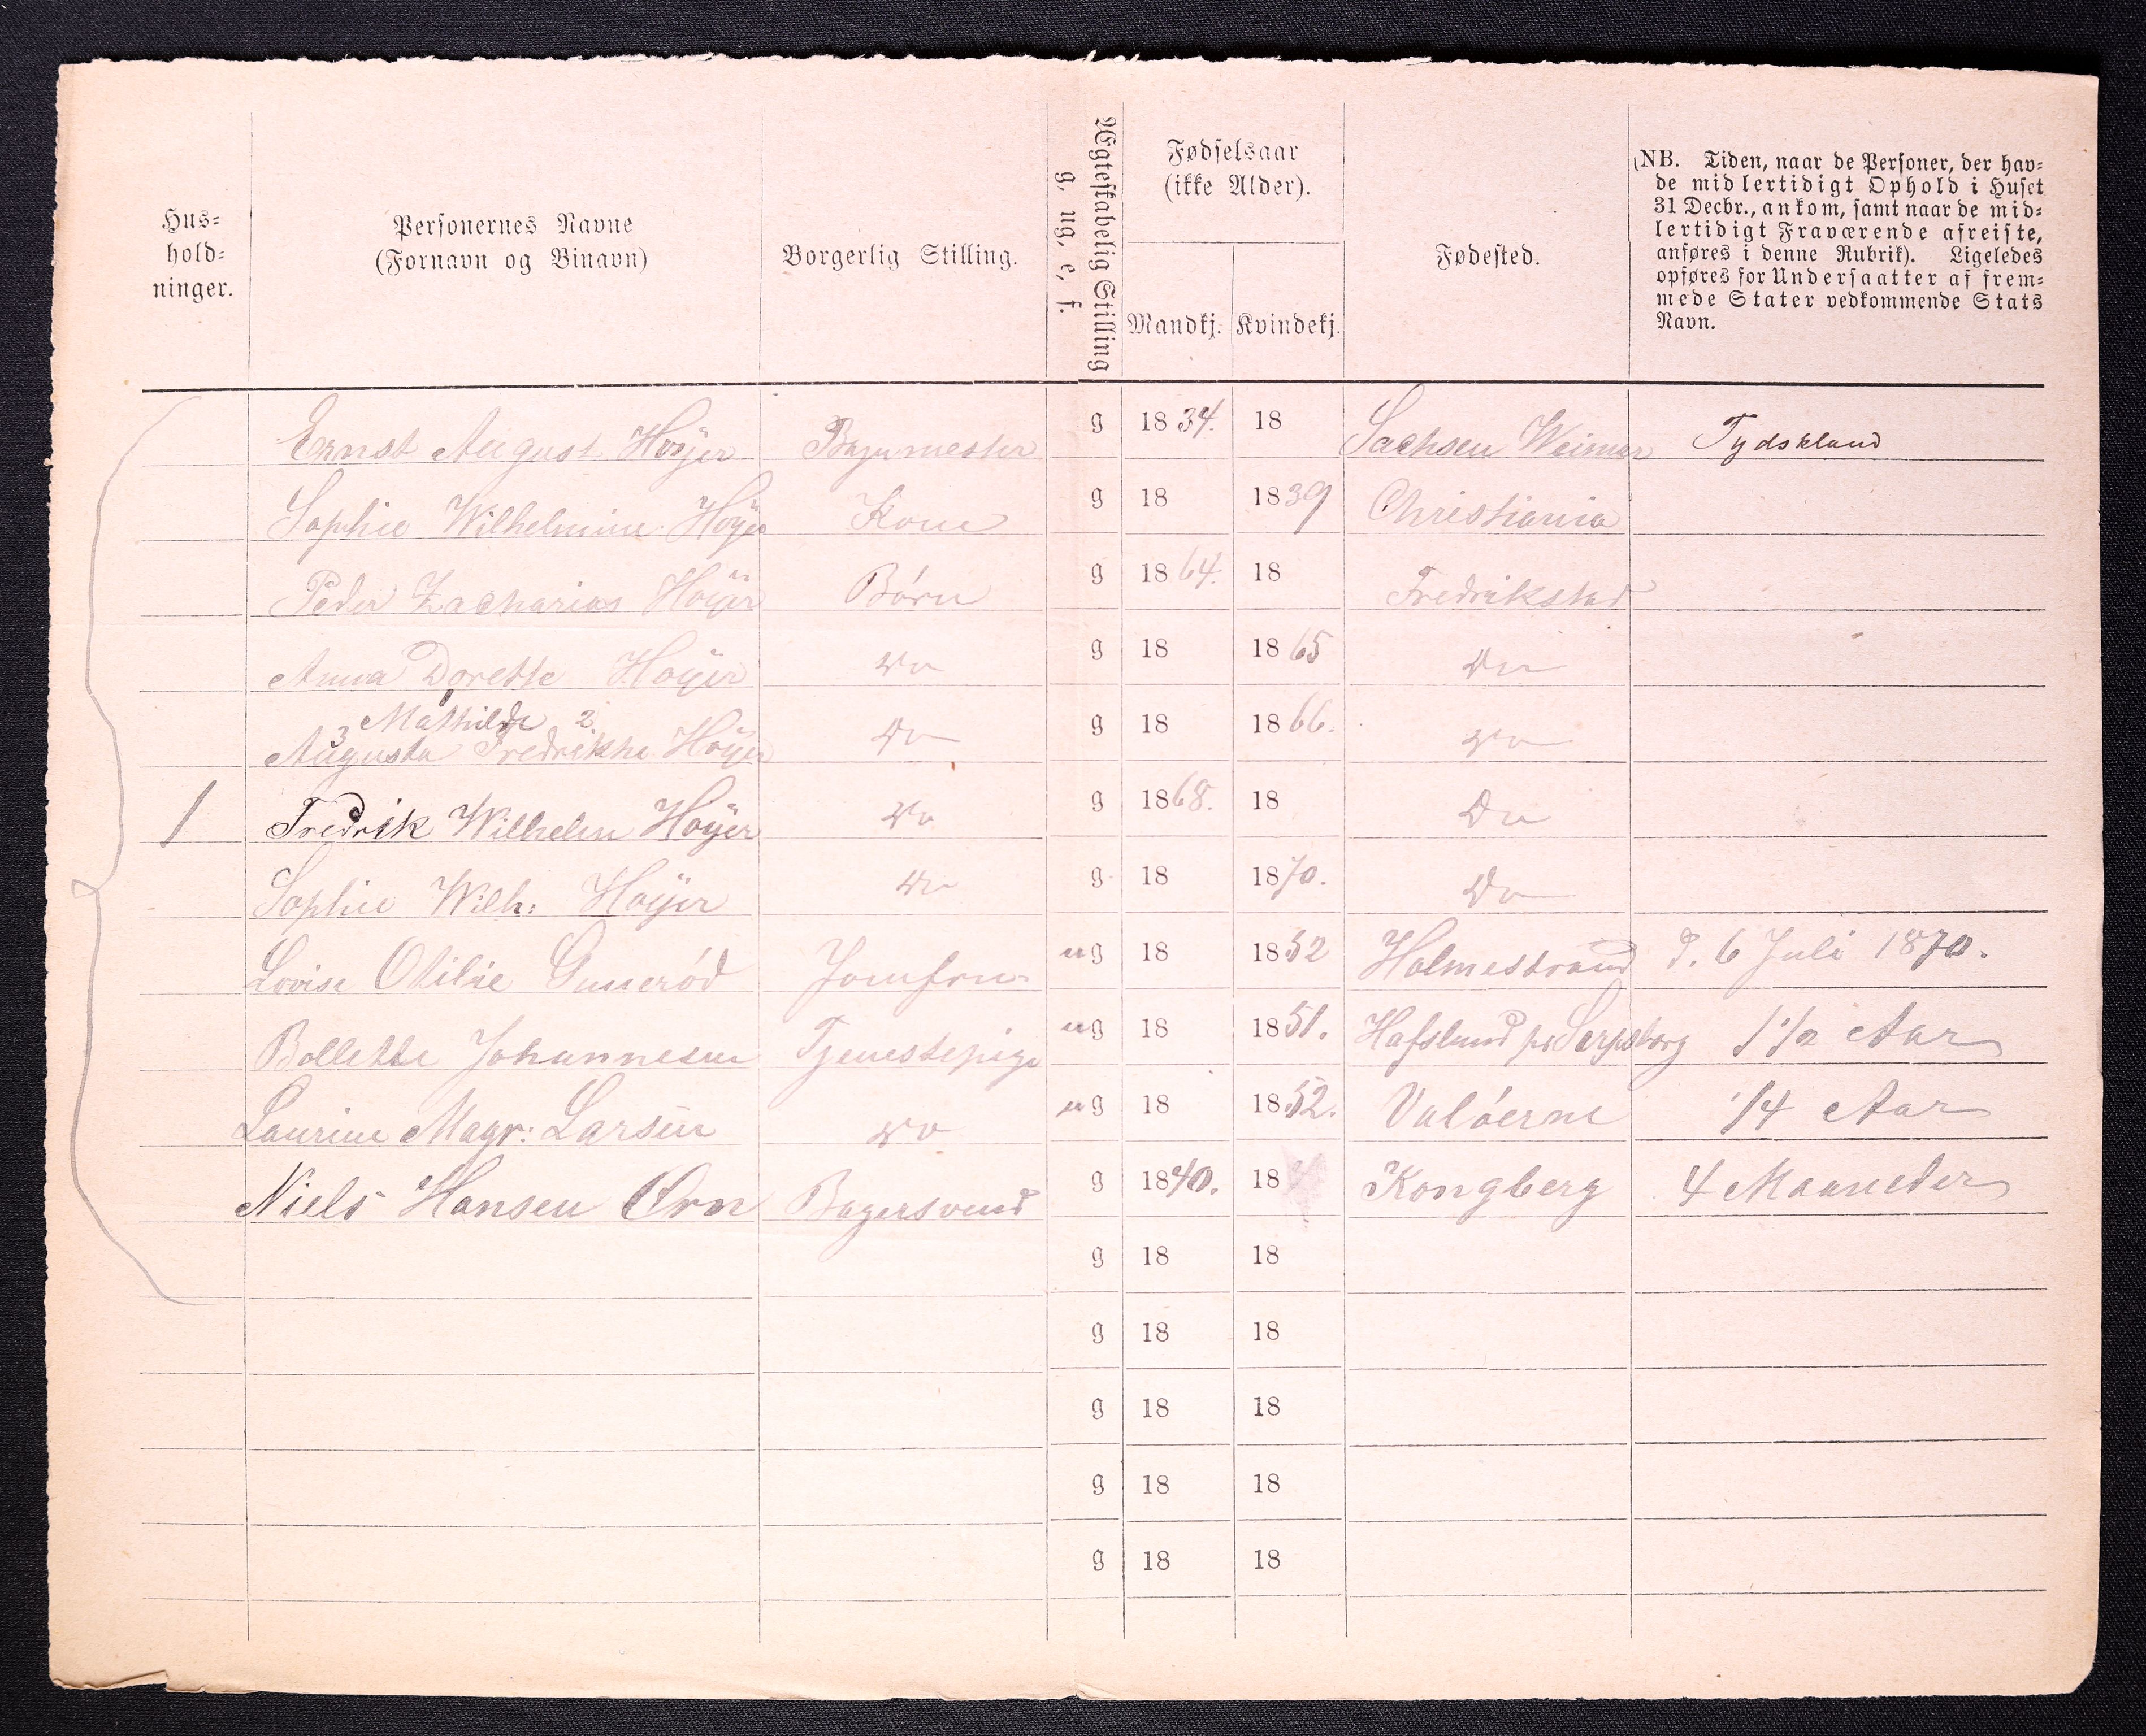 Hus-
hold-
ninger.
Personernes Navne
(Fornavn og Binavn)
Borgerlig Stilling.
Ægteskabelig Stilling
g, ug, e, f.
Fødselsaar
(ikke Alder).
Mandkj. Kvindekj.
Fødested.
(NB. Tiden, naar de Personer, der hav-
de midlertidigt Ophold i Huset
31 Decbr., ankom, samt naar de mid-
lertidigt Fraværende afreiste,
anføres i denne Rubrik). Ligeledes
opføres for Undersaatter af frem-
mede Stater vedkommende Stats
Navn.
Ernst August Höÿer Bagermester g 1834. 18 Sachsen Weimar Tydskland
Sophie Wilhelmine Höÿer Kone g 18 1839 Christiania
Peder Zacharias Höÿer Börn g 1864. 18 Fredrikstad
Anna Dorette Höÿer Do g 18 1865 Do
Mathilde 2
3 Augusta Fredrikke Höÿer Do g 18 1866. Do
1 Fredrik Wilhelm Höÿer Do g 1868. 18 Do
Sophie Wilh: Höÿer Do g 18 1870. Do
Lovise Otilie Guneröd Jomfru ug 18 1852 Holmestrand d. 6 Juli 1870.
Bollette Johannesen Tjenestepige ug 18 1851. Hafslund pr Sarpsborg 1 1/2 Aar
Laurine Magr: Larsen do ug 18 1852. Valöerne 1/4 Aar
Niels Hansen Ørn Bagersvend g 1840. 18 Kongberg 4 Maaneder
g 18 18
g 18 18
g 18 18
g 18 18
g 18 18